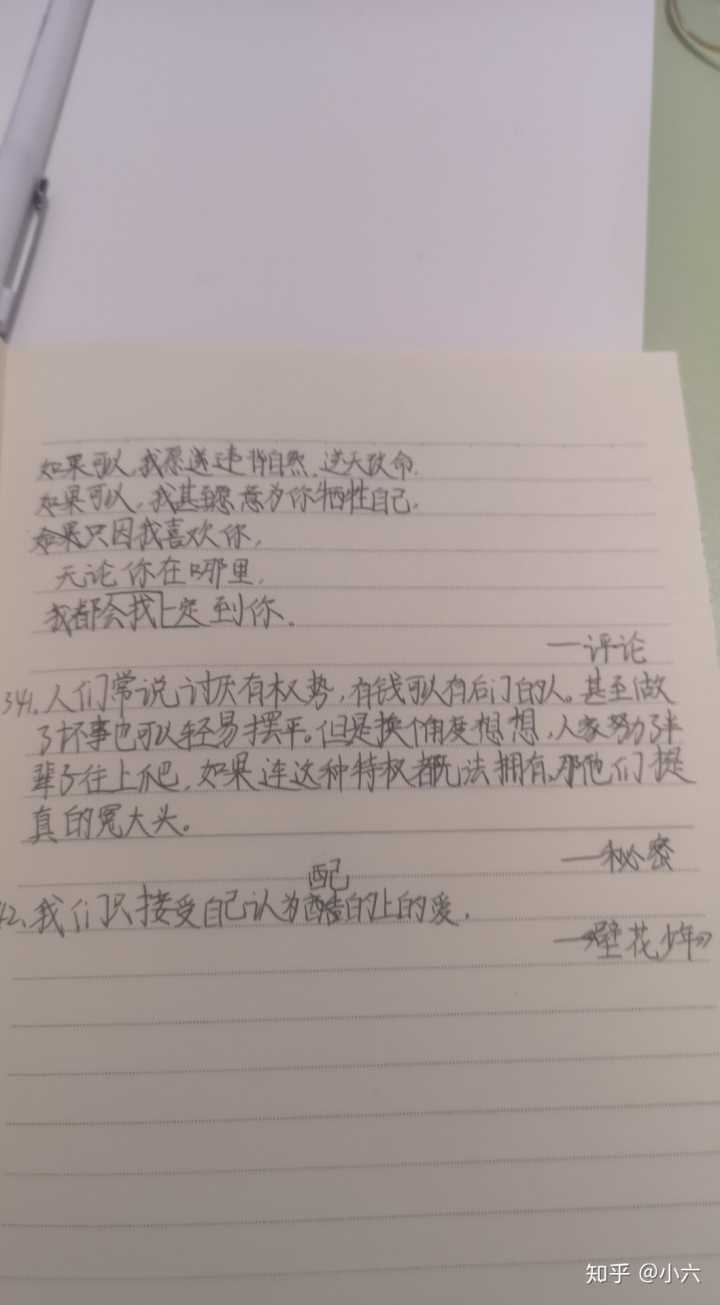 如果可以,我愿逆违背自然、逆天改命,
如果可以,我甚至愿意为你牺牲自己,
如果只因我喜欢你,
无论你在哪里,
我都会找上定到你.
—评论
341.人们常说讨厌有权势,有钱可以有后门的人。甚至做
了坏事也可以轻易摆平。但是换个角度想想,人家努力了半
辈子往上爬,如果连这种特权都无法拥有,那他们才是
真的冤大头。
—秘密
配
42、我们只接受自己认为的上的爱.
—《壁花少年》
知乎 @小六